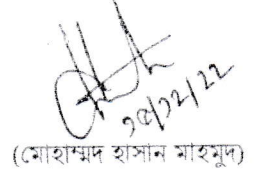 ১৫/১২/২২
(মোহাম্মদ হাসান মাহমুদ)